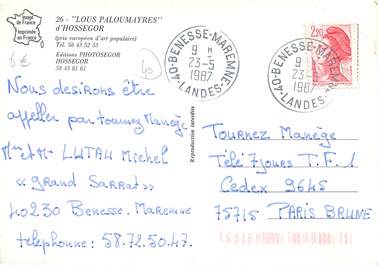 Image de France
Imprimée en France
26 - "LOUS PALOUMAYRES"
d'HOSSEGOR
(prix européen d'art populaire)
Tél. 58 43 52 53
Editions PHOTOSEGOR
HOSSEGOR
58 43 81 61
6€
40
40-BENESSE-MAREMNE
9 H
23-5
1987
-LANDES-
40-BENESSE-MAREMNE
9 H
23-5
1987
-LANDES-
2,20
Reproduction interdite
Nous desirons être
appeller par tournez Manège
Mme et Mr LUTAU Michel
« grand Sarrat »
40230 Benesse. Maremne
telephonne: 58.72.50.47.
Tournez Manège
Télé 7 jours T.F. 1
Cedex 9645
75715 PARIS BRUNE